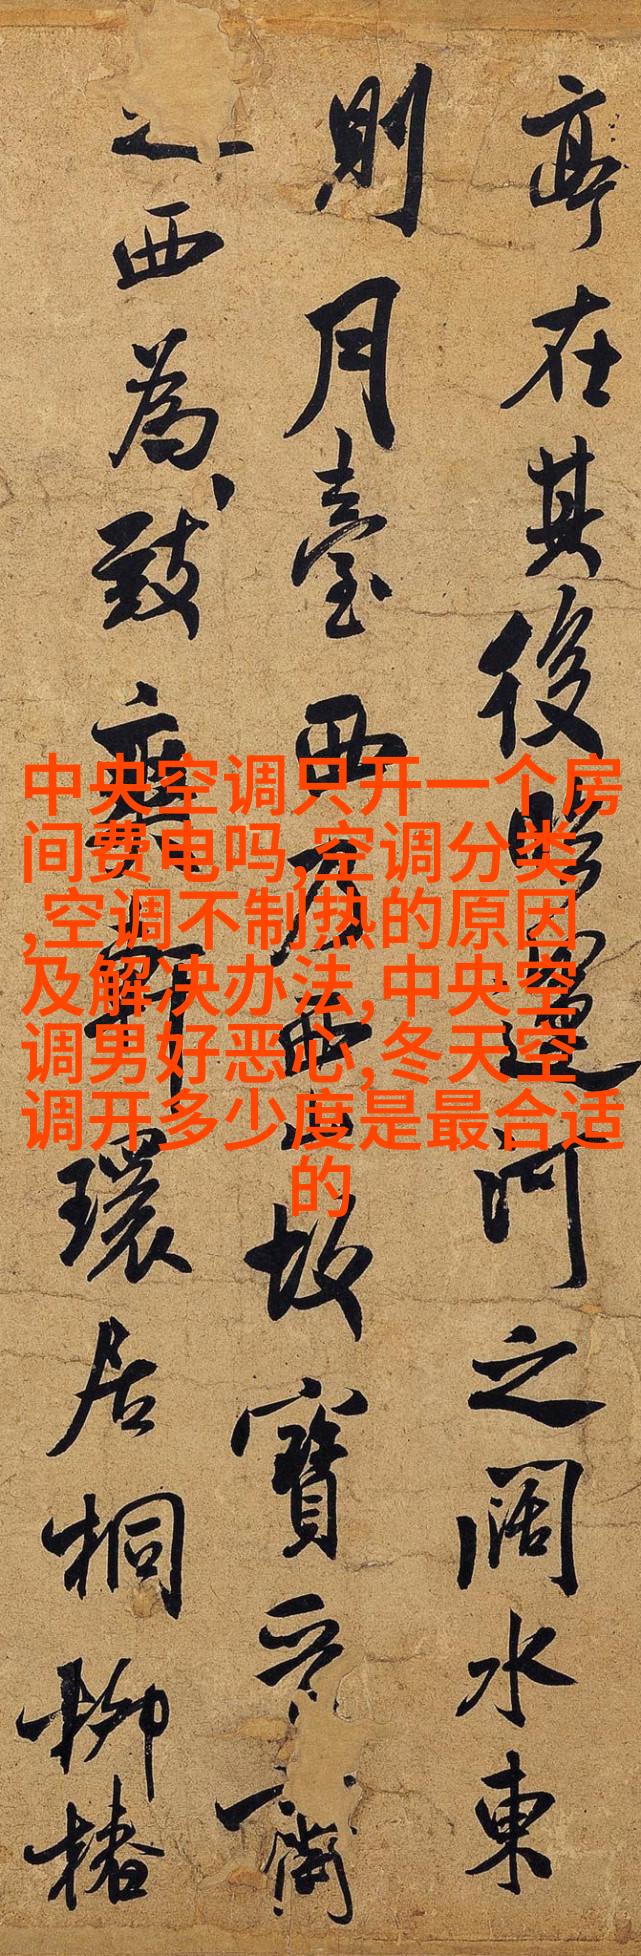 亭在其後臨運河之闊水東
則月臺西乃西山故寶晉齋
之西為致爽軒環居桐柳椿
中央空调只开一个房
间费电吗,空调分类
,空调不制热的原因
及解决办法,中央空
调男好恶心,冬天空
调开多少度是最合适
的